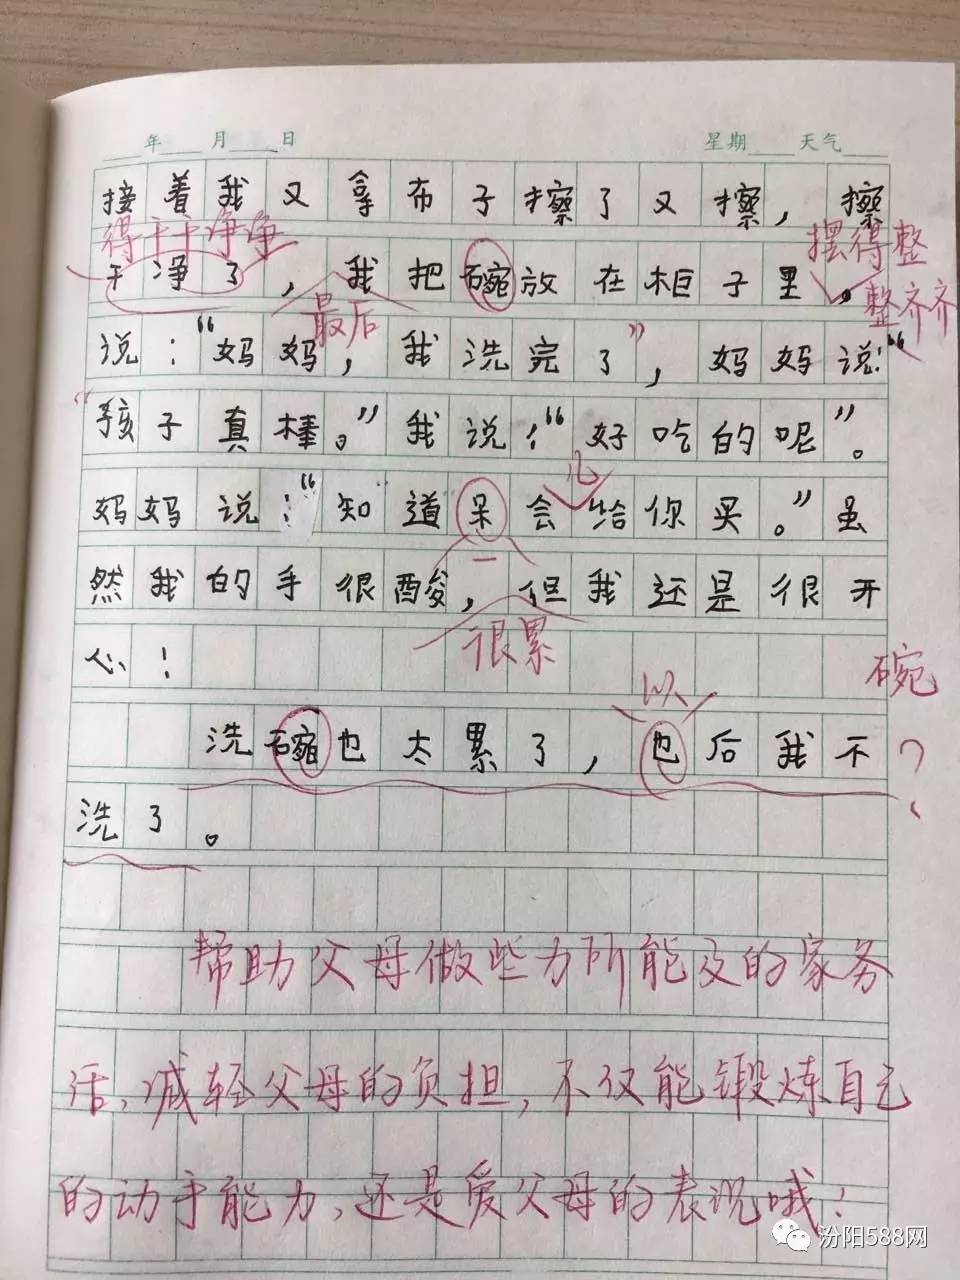 年 月 日 星期 天气
接着我又拿布子擦了又擦，擦
得干干净净 摆得整
干净了，我把碗放在柜子里。
最后 整齐齐
说："妈妈，我洗完了"，妈妈说："
"孩子真棒。"我说："好吃的呢"。
儿
妈妈说："知道呆会给你买。"虽
一
然我的手很酸，但我还是很开
很累
心！ 碗
以
洗碗也太累了，也后我不？
洗了。
帮助父母做些力所能及的家务
活，减轻父母的负担，不仅能锻炼自己
的动手能力，还是爱父母的表现哦！
汾阳588网